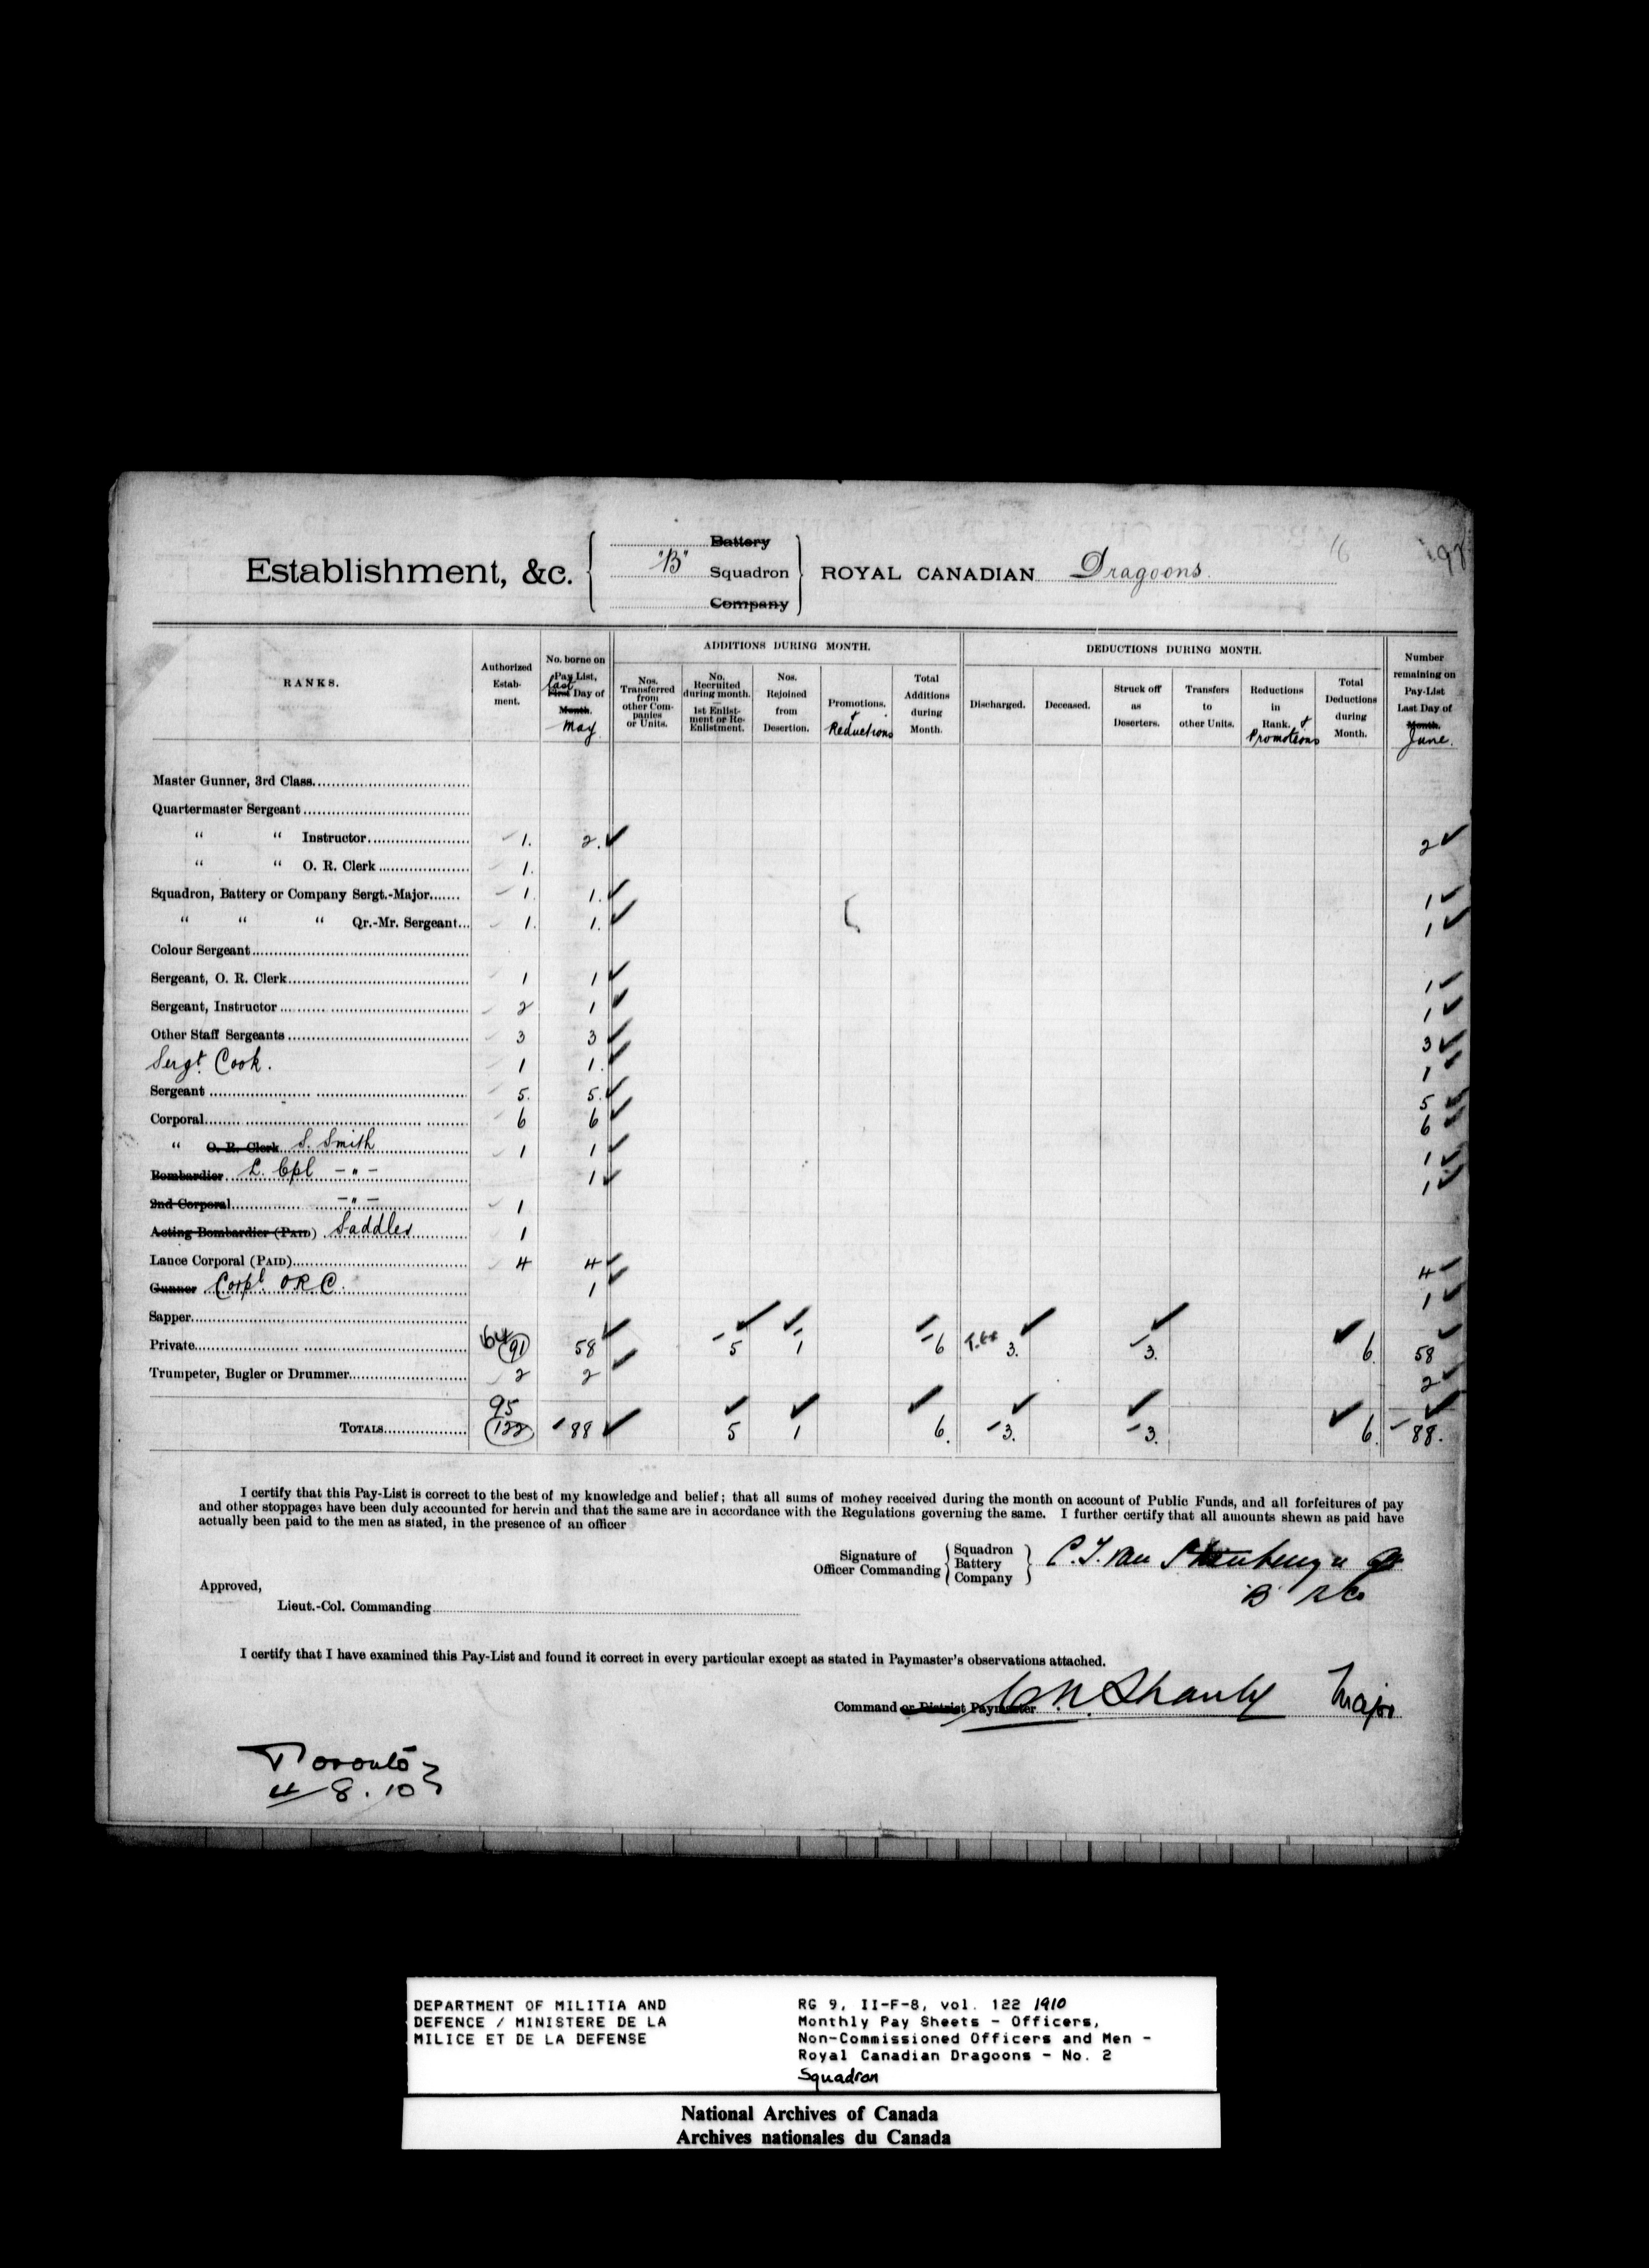 Battery
Establishment, &c. "B" Squadron ROYAL CANADIAN Dragoons. 16
Company
RANKS.
Authorized Establishment.
No. borne on Pay List, last First Day of Month. May
ADDITIONS DURING MONTH.
Nos. Transferred from other Companies or Units.
No. Recruited during month. — 1st Enlistment or Re-Enlistment.
Nos. Rejoined from Desertion.
Promotions. & Reductions
Total Additions during Month.
DEDUCTIONS DURING MONTH.
Discharged.
Deceased.
Struck off as Deserters.
Transfers to other Units.
Reductions in Rank. & Promotions
Total Deductions during Month.
Number remaining on Pay-List Last Day of Month. June.
Master Gunner, 3rd Class
Quartermaster Sergeant
“ “ Instructor 1. 2. 2
“ “ O. R. Clerk 1.
Squadron, Battery or Company Sergt.-Major 1. 1. 1
“ “ “ Qr.-Mr. Sergeant 1. 1. 1
Colour Sergeant
Sergeant, O. R. Clerk 1 1 1
Sergeant, Instructor 2 1 1
Other Staff Sergeants 3 3 3
Sergt. Cook. 1 1. 1
Sergeant 5. 5. 5
Corporal 6 6 6
“ O. R. Clerk S. Smith 1 1 1
Bombardier L. Cpl — " — 1 1
2nd Corporal — " — 1
Acting Bombardier (PAID) Saddler 1
Lance Corporal (PAID) 4 4 4
Gunner Corpl. O R C. 1 1
Sapper
Private 64 91 58 5 1 6 3. 3. 6. 58
Trumpeter, Bugler or Drummer 2 2 2
95
TOTALS 122 88 5 1 6. 3. 3. 6. 88.
I certify that this Pay-List is correct to the best of my knowledge and belief; that all sums of money received during the month on account of Public Funds, and all forfeitures of pay
and other stoppages have been duly accounted for herein and that the same are in accordance with the Regulations governing the same. I further certify that all amounts shewn as paid have
actually been paid to the men as stated, in the presence of an officer
Signature of Officer Commanding Squadron Battery Company C. T. Van
"B"
Approved,
Lieut.-Col. Commanding
I certify that I have examined this Pay-List and found it correct in every particular except as stated in Paymaster's observations attached.
Command or District Paymaster C N Shanly Major
Toronto
8. 10
DEPARTMENT OF MILITIA AND
DEFENCE / MINISTERE DE LA
MILICE ET DE LA DEFENSE
RG 9, II-F-8, vol. 122 1910
Monthly Pay Sheets - Officers,
Non-Commissioned Officers and Men -
Royal Canadian Dragoons - No. 2
Squadron
National Archives of Canada
Archives nationales du Canada